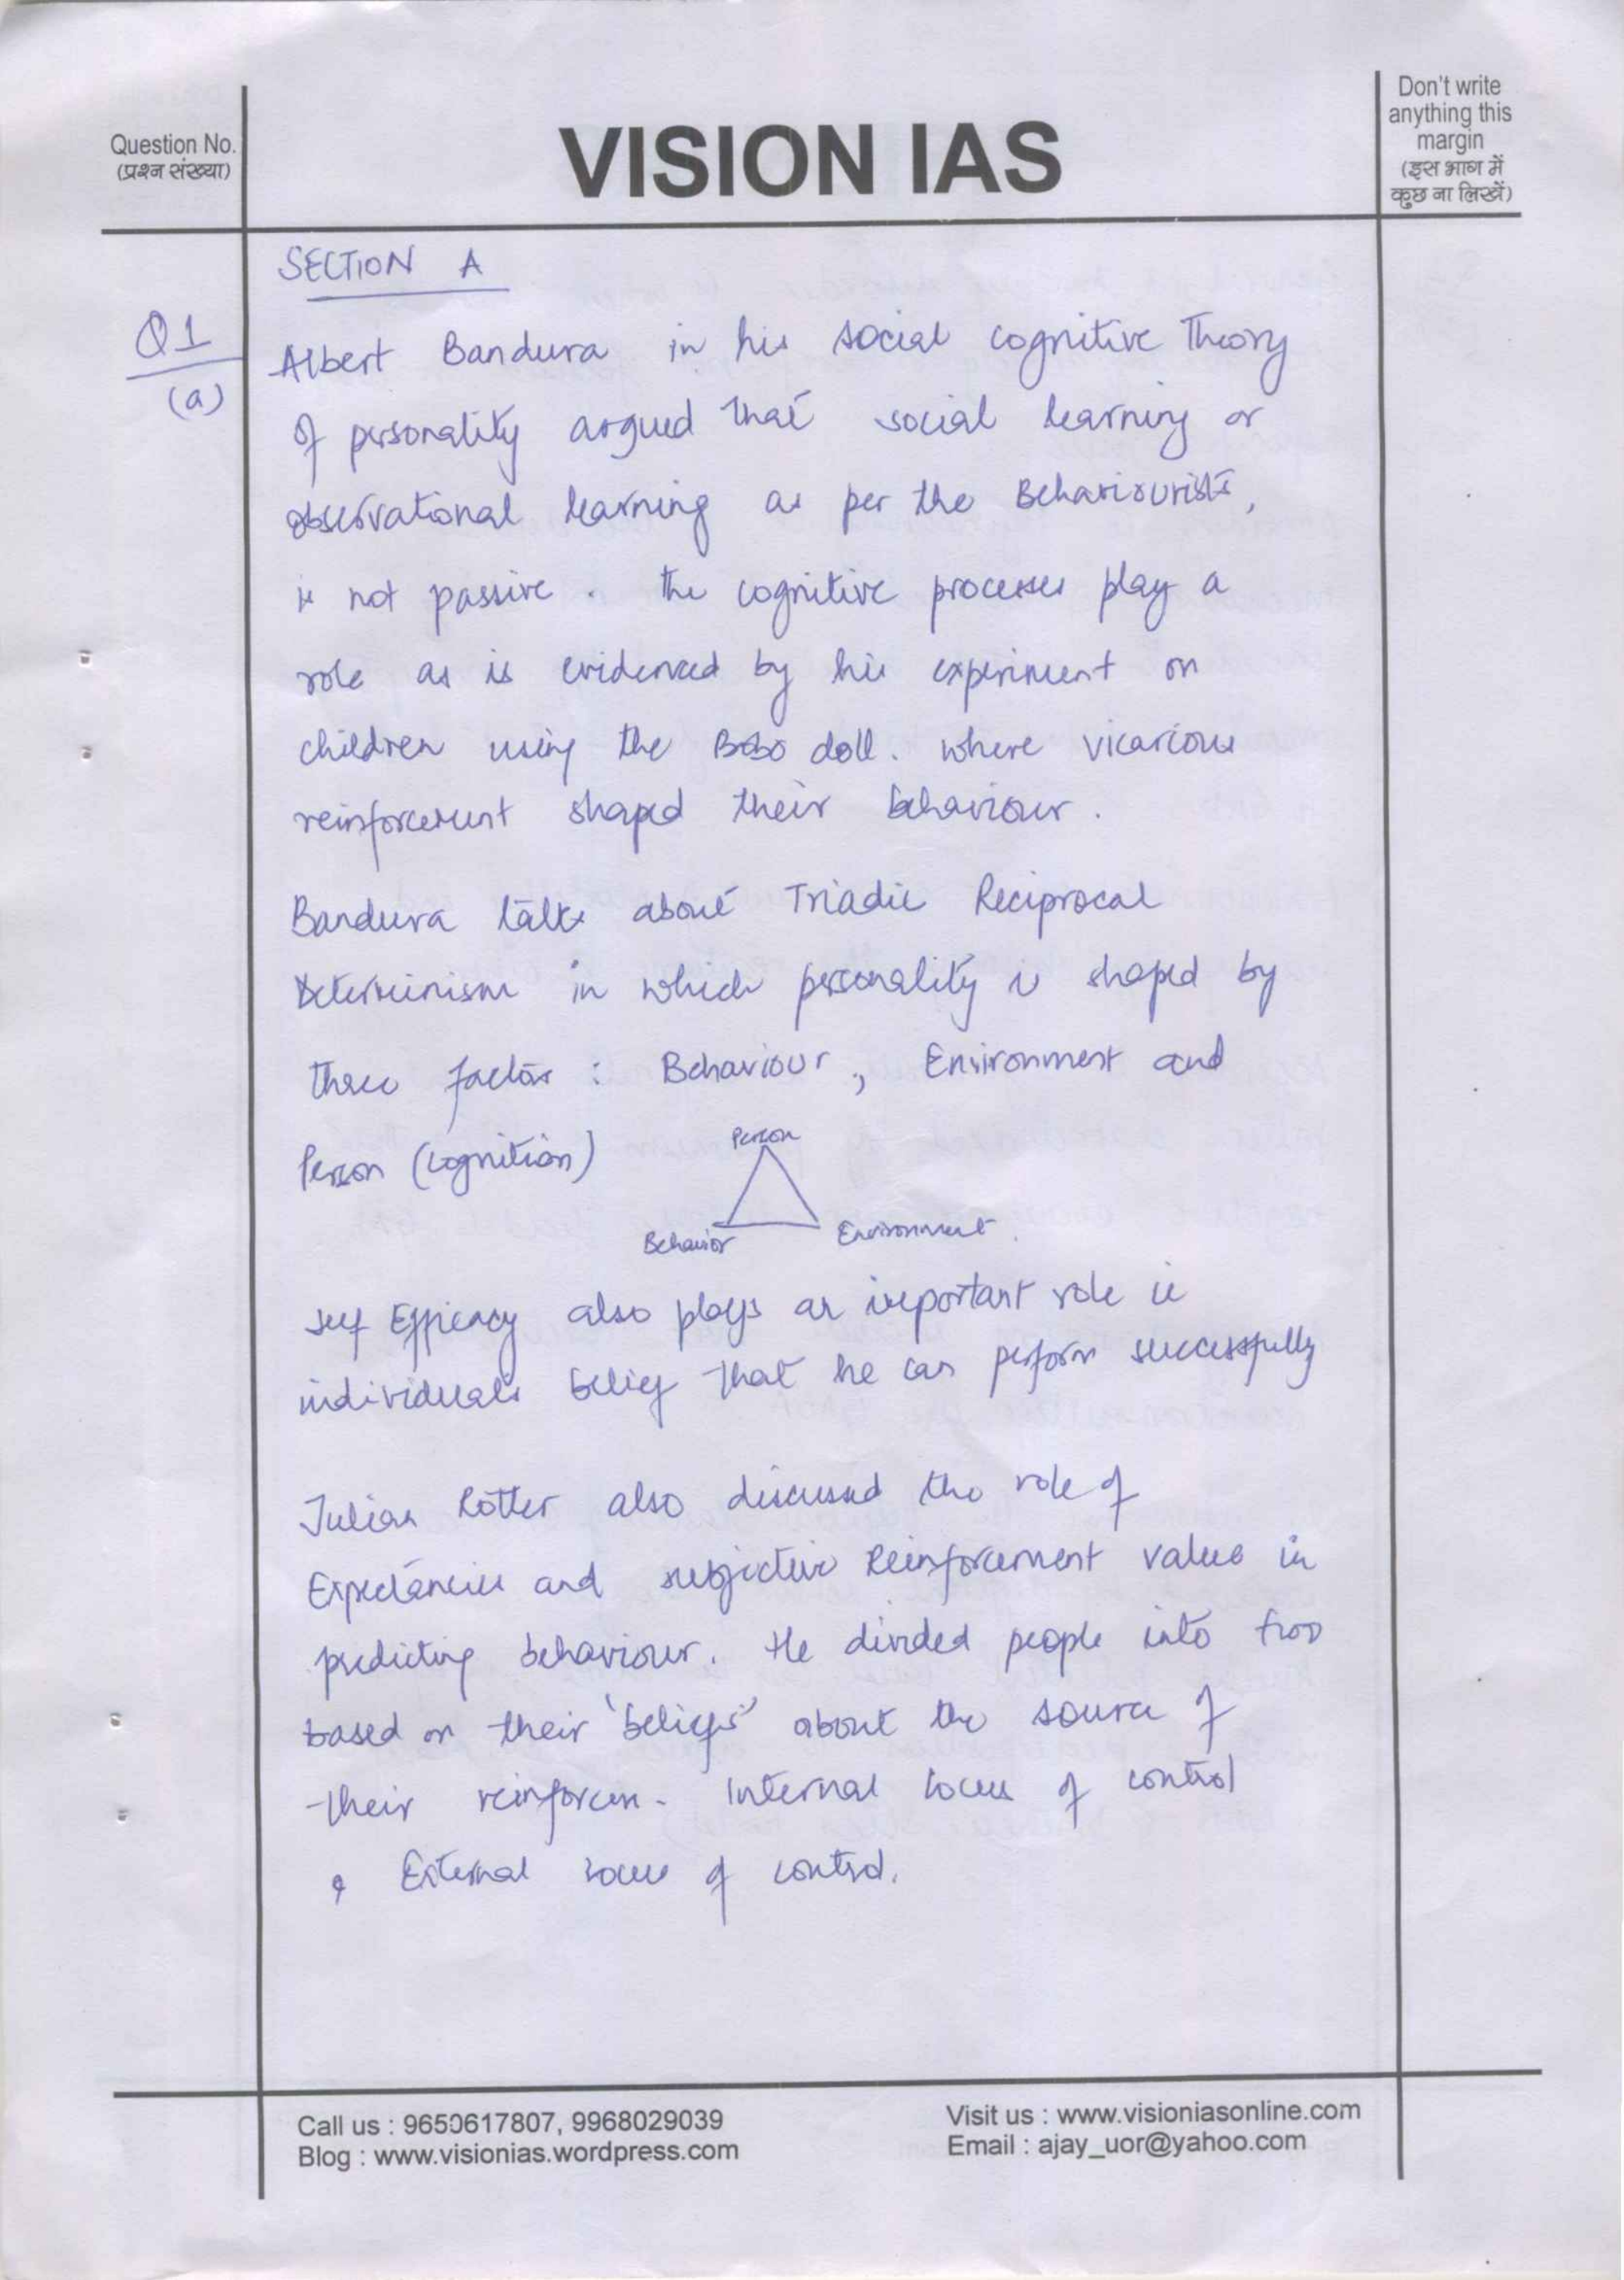 Question No.
(प्रश्न संख्या)
VISION IAS
Don't write
anything this
margin
(इस भाग में
कुछ ना लिखें)
SECTION A
Q1
(a)
Albert Bandura in his social cognitive Theory
of personality argued that social learning or
observational learning as per the Behaviourists,
is not passive. The cognitive processes play a
role as is evidenced by his experiment on
children using the Bobo doll. where vicarious
reinforcement shaped their behaviour.
Bandura talks about Triadic Reciprocal
Determinism in which personality is shaped by
three factors : Behaviour, Environment and
Person (cognition)
Person
Behavior
Environment.
Self Efficacy also plays an important role ie
individuals belief that he can perform successfully
Julian Rotter also discussed the role of
Expectancies and subjective Reinforcement value in
predicting behaviour. He divided people into two
based on their 'beliefs' about the source of
their reinforcers. Internal locus of control
& External locus of control.
Call us : 9650617807, 9968029039
Blog : www.visionias.wordpress.com
Visit us : www.visioniasonline.com
Email : ajay_uor@yahoo.com